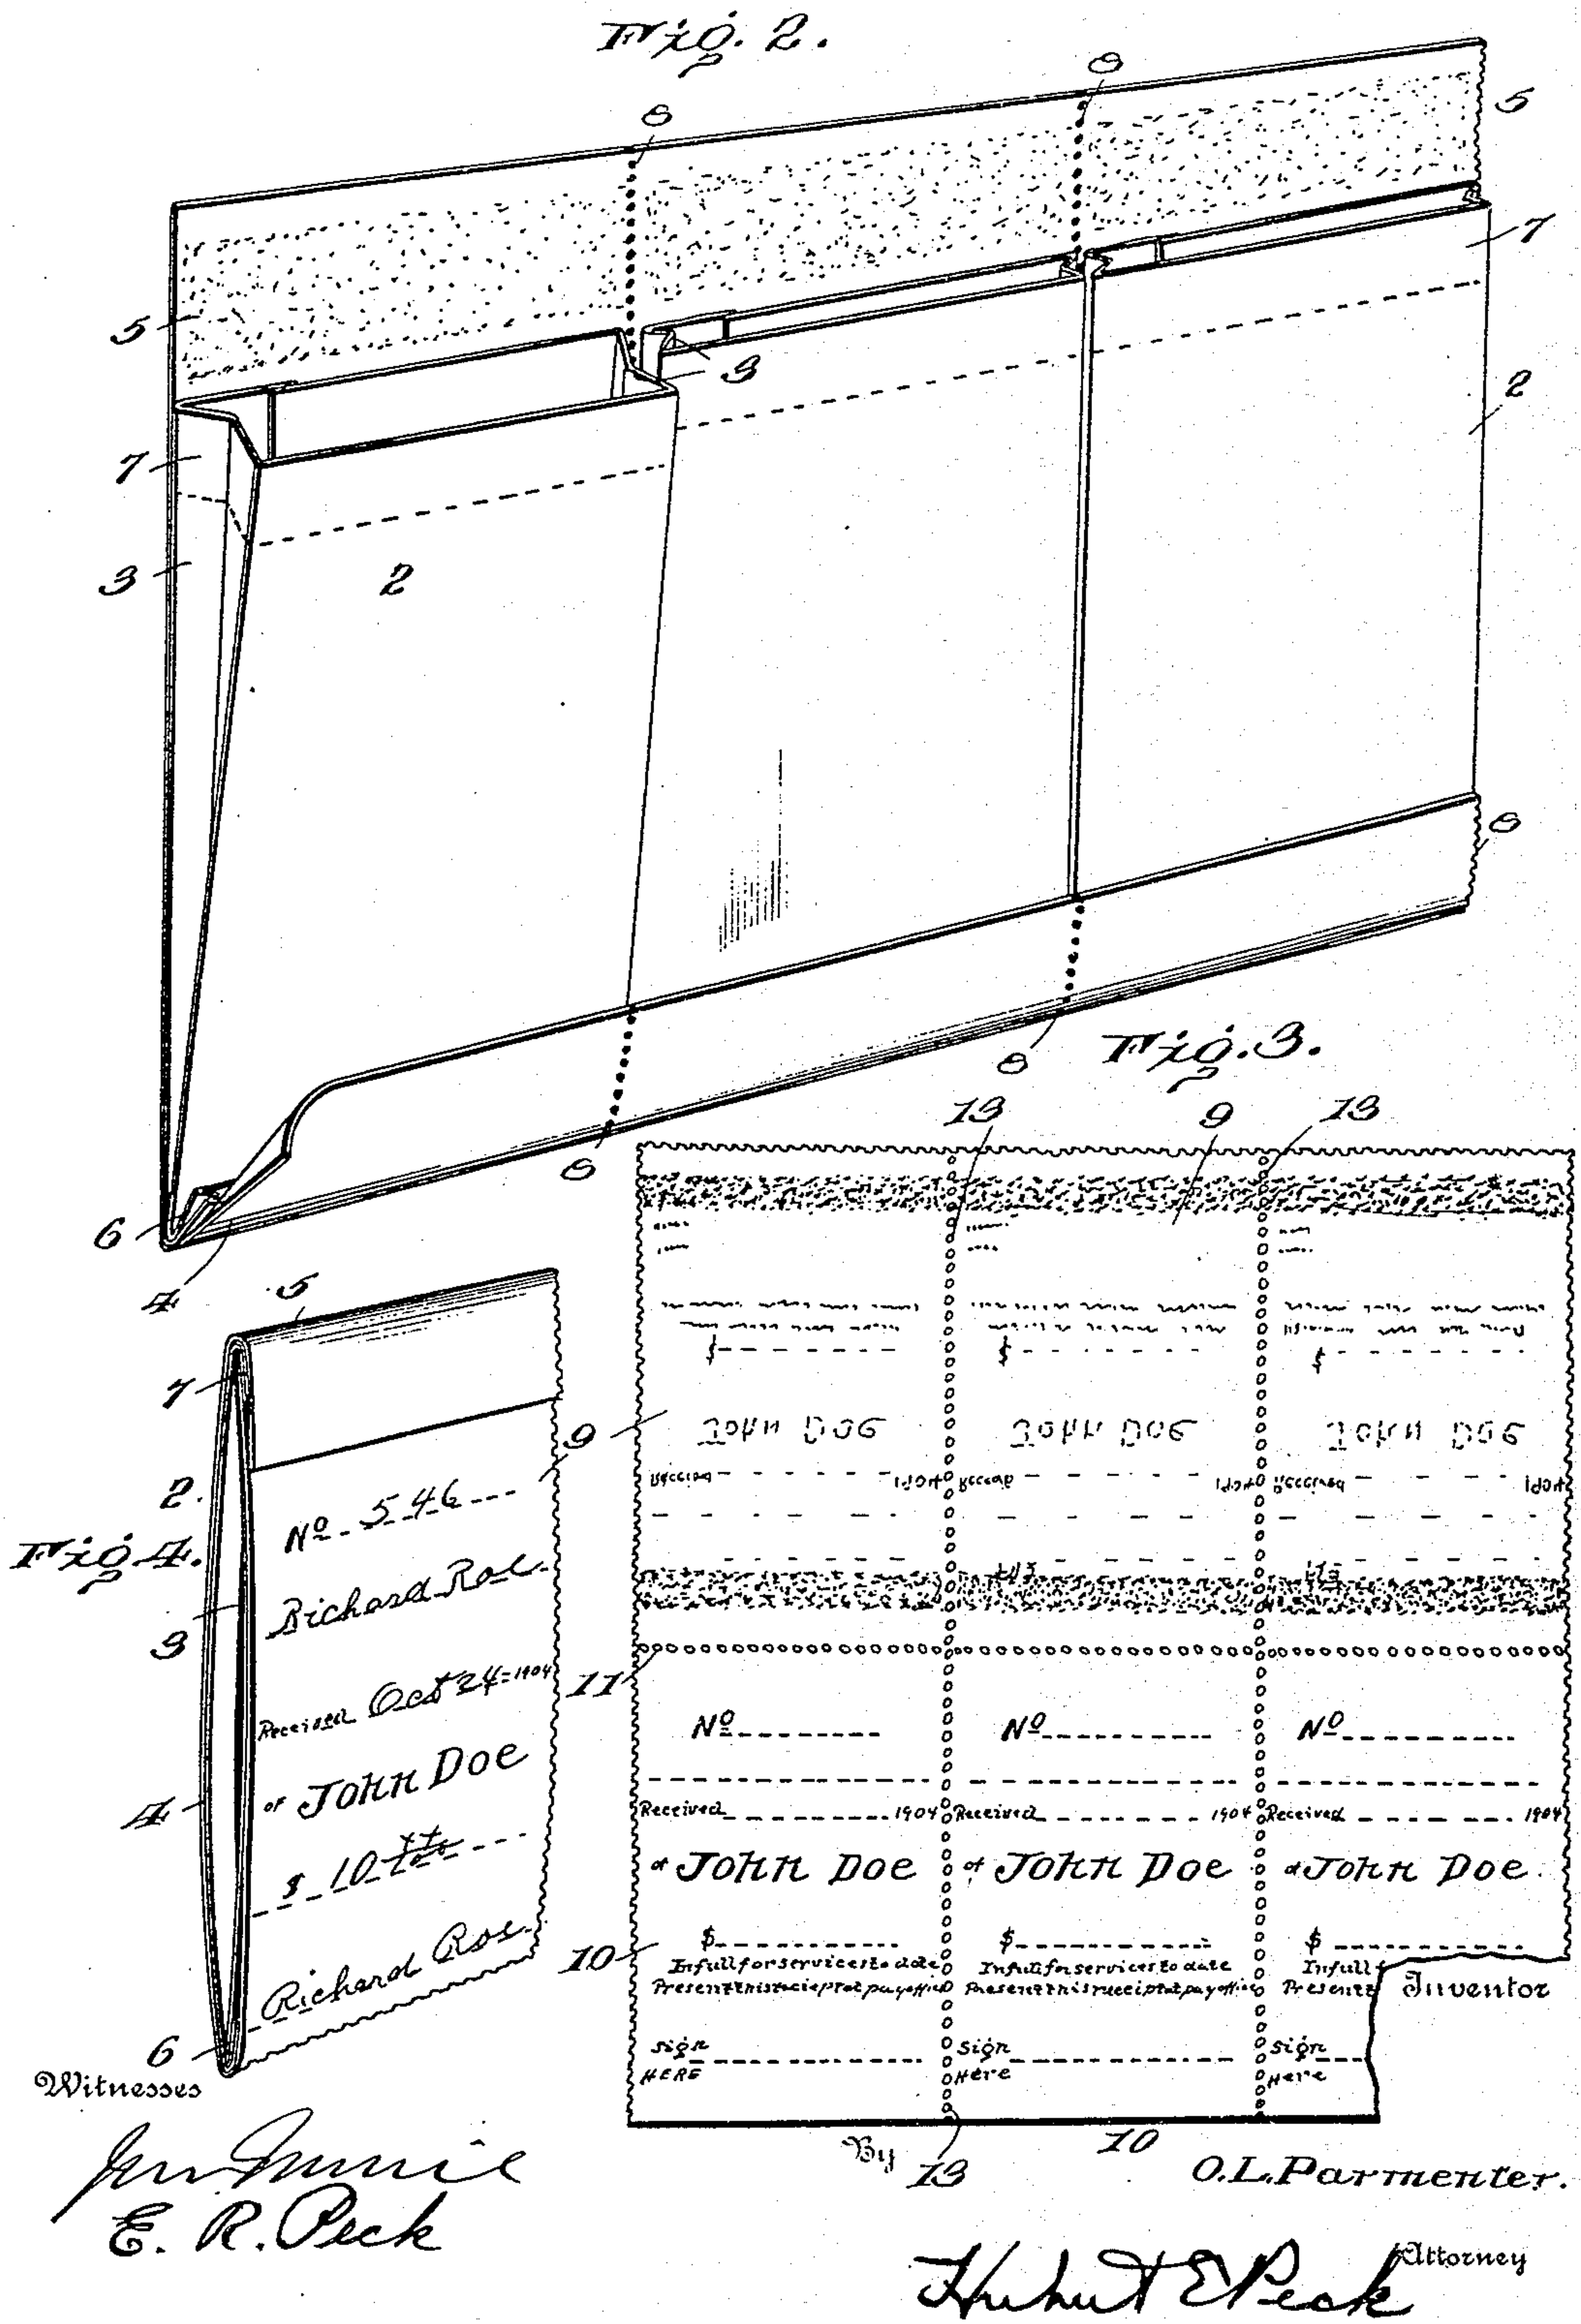 Fig. 2.
8
8
5
5
7
3
7
2
3
2
8
6
4
8
8
Fig. 3.
13
9
13
$
$
$
John Doe
John Doe
John Doe
Received 1904
Received 1904
9
11
No
No
No
Received 1904
Received 1904
Received 1904
of John Doe
of John Doe
of John Doe
$
$
$
In full for services to date
In full for services to date
In full
Present this receipt at pay office
Present this receipt at pay office
Present
10
Sign HERE
Sign Here
Sign Here
13
10
Fig. 4.
5
7
2.
3
4
6
No. 546
Richard Roe
Received Oct 24-1904
of John Doe
$ 10
Richard Roe
Witnesses
E. R. Peck
Inventor
O. L. Parmenter.
By
Hubert E Peck
Attorney